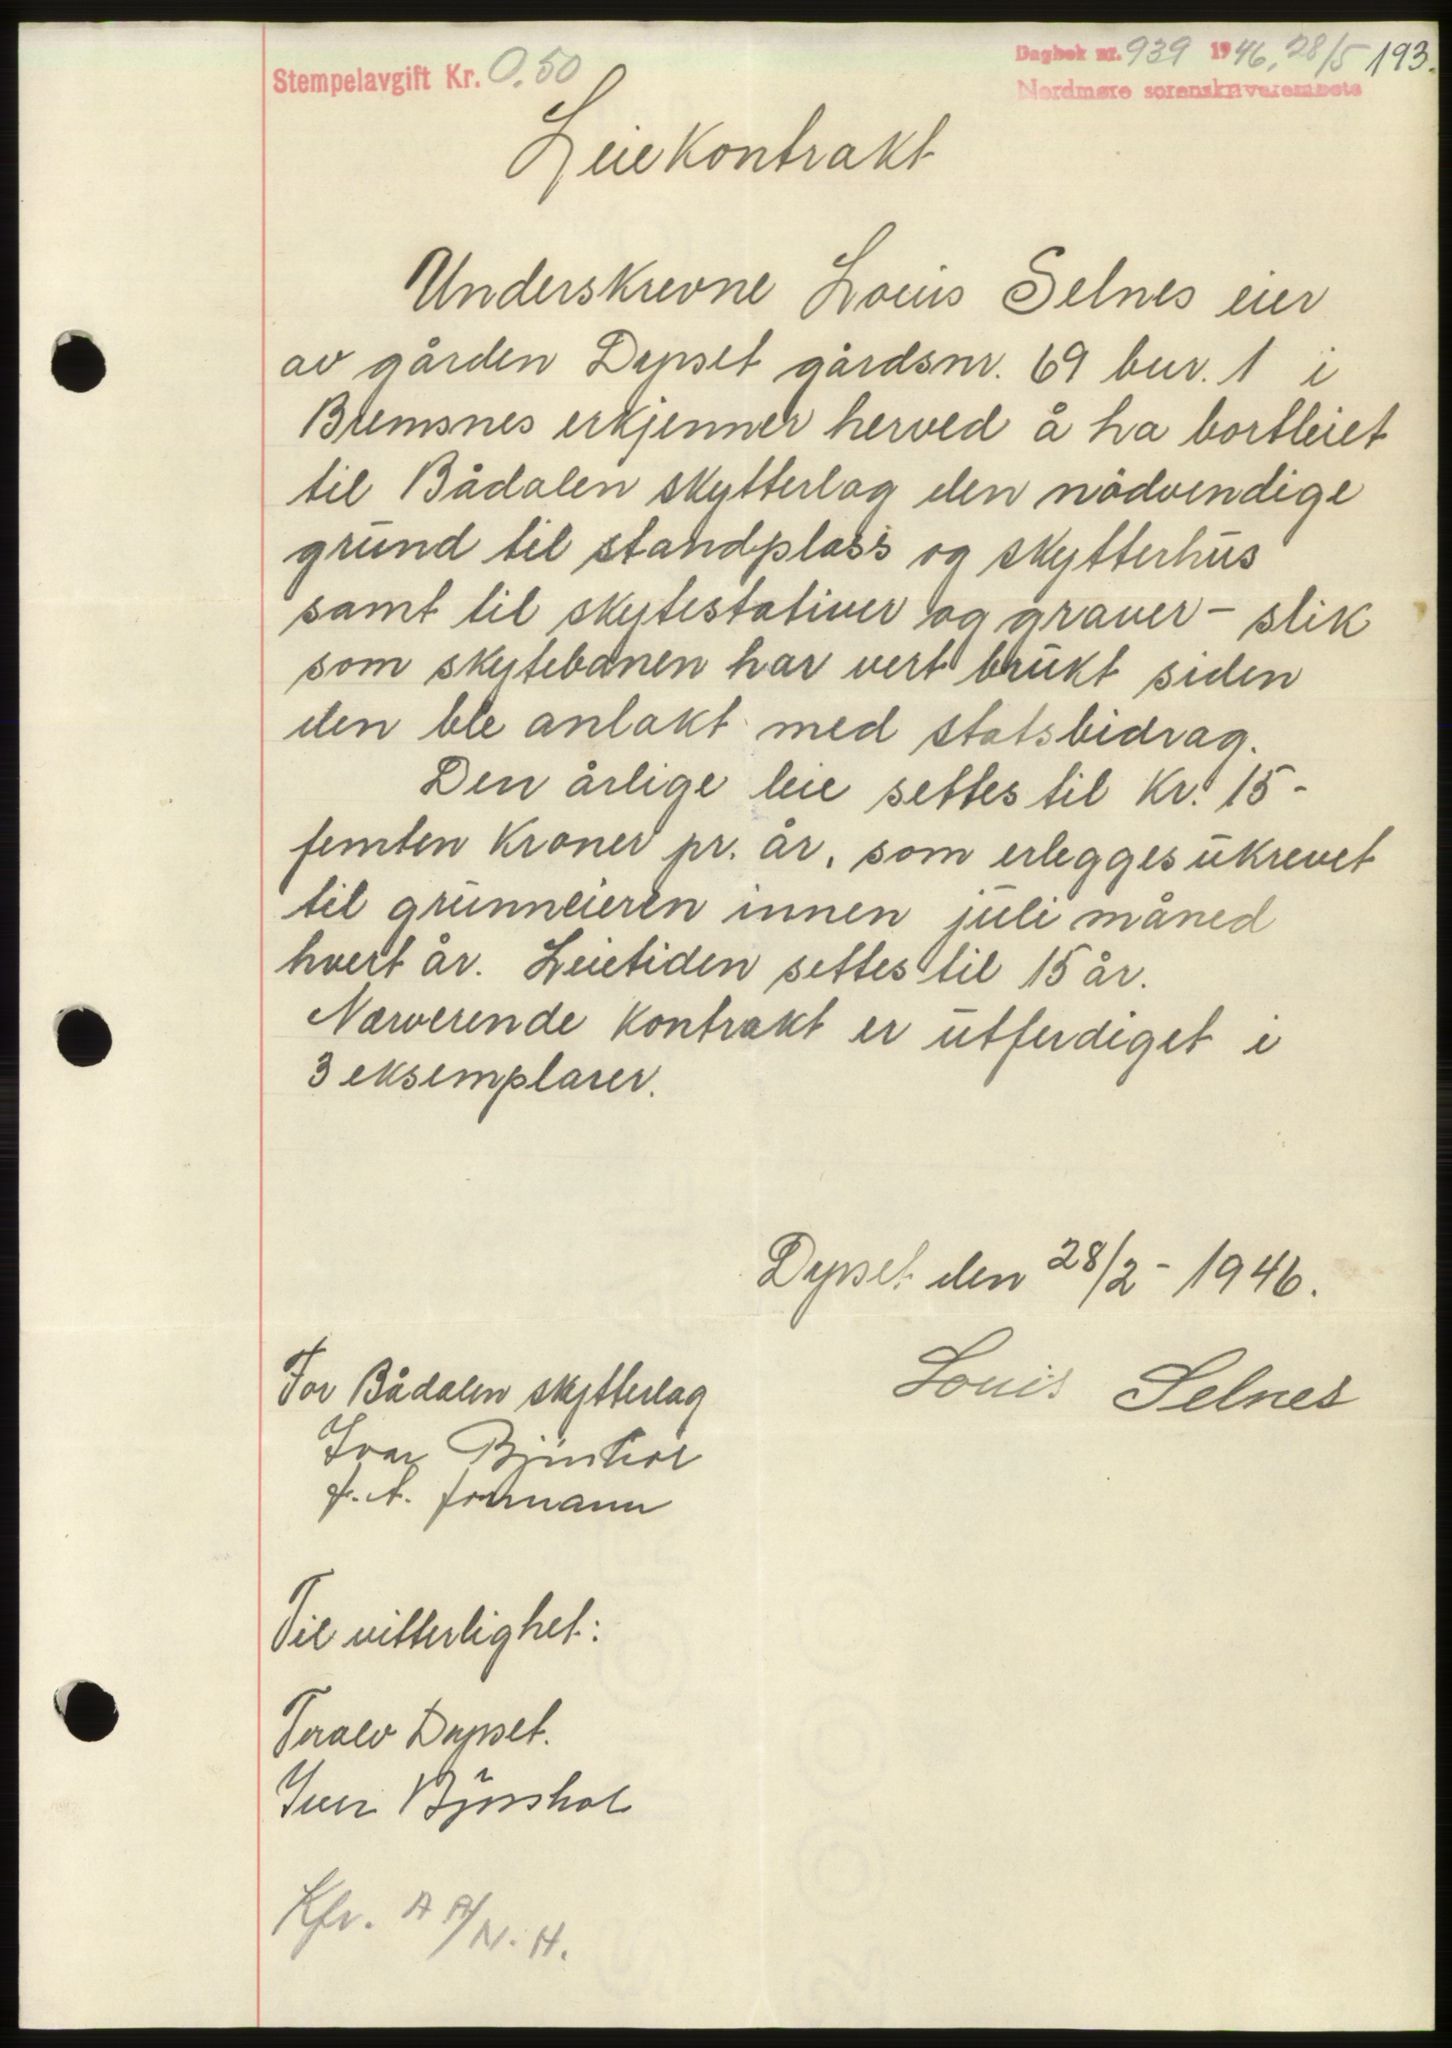 Stempelavgift Kr. 0.50
Dagbok nr. 939 1946, 28/5 193.
Nordmøre sorenskriverembete
Leiekontrakt
Underskrevne Louis Selnes eier
av gården Dypset gårdsnr. 69 bur. 1 i
Bremsnes erkjenner herved å ha bortleiet
til Bådalen skytterlag den nödvendige
grund til standplass og skytterhus
samt til skytestativer og graver - slik
som skytebanen har vert brukt siden
den ble anlakt med statsbidrag.
Den årlige leie settes til Kr. 15-
femten kroner pr. år, som erlegges ukrevet
til grunneieren innen juli måned
hvert år. Leietiden settes til 15 år.
Nærverende kontrakt er utferdiget i
3 eksemplarer.
Dypset den 28/2 - 1946.
Louis Selnes
For Bådalen skytterlag
Ivar
f. t. formann
Til vitterlighet:
Toralv Dypset.
Iver
Kfr. A A/N. H.